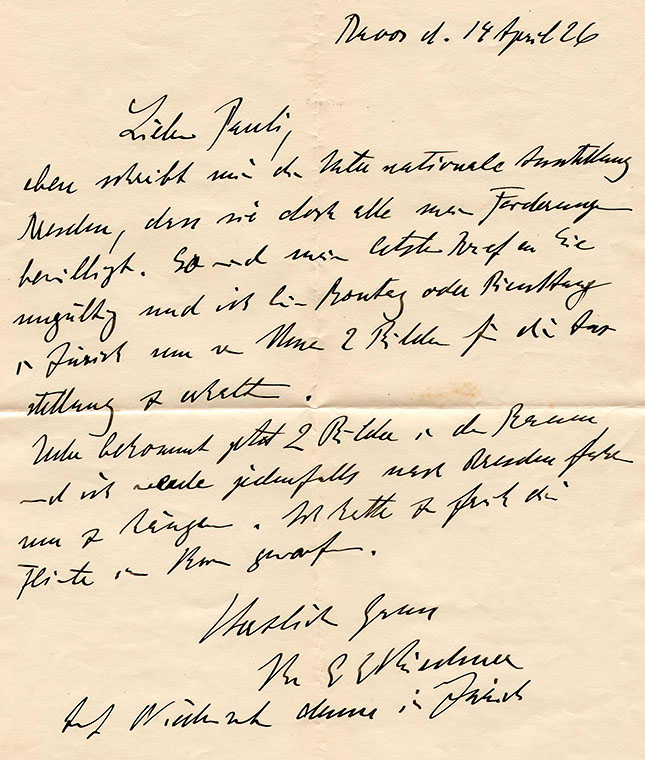 Davos d. 14 April 26
Lieber Pauli,
eben schreibt mir die Internationale Ausstellung
Dresden, dass sie doch alle meine Forderungen
bewilligt. So wird mein letzter Brief an Sie
ungültig und ich bin Montag oder Dienstag
in Zürich um von Ihnen 2 Bilder für die Aus
stellung zu erhalten.
bekommt jetzt 2 Bilder in den Raum
und ich werde jedenfalls nach Dresden fahren
um zu hängen. Ich hatte zu früh die
Flinte ins Korn geworfen.
Herzlich Gruss
Ihr E L Kirchner
Auf Wiedersehen denn in Zürich